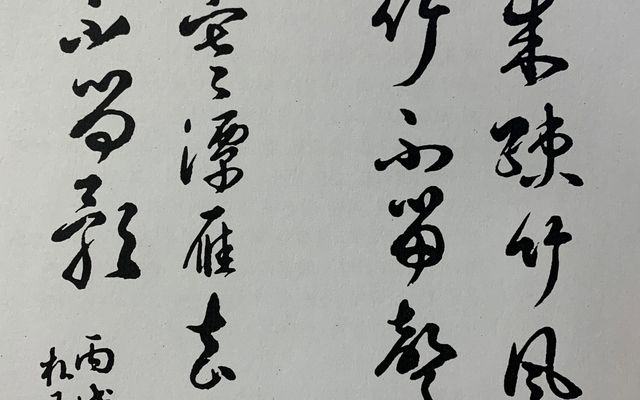 来疎竹風
竹不留聲
寒潭雁去
不留影
丙戌